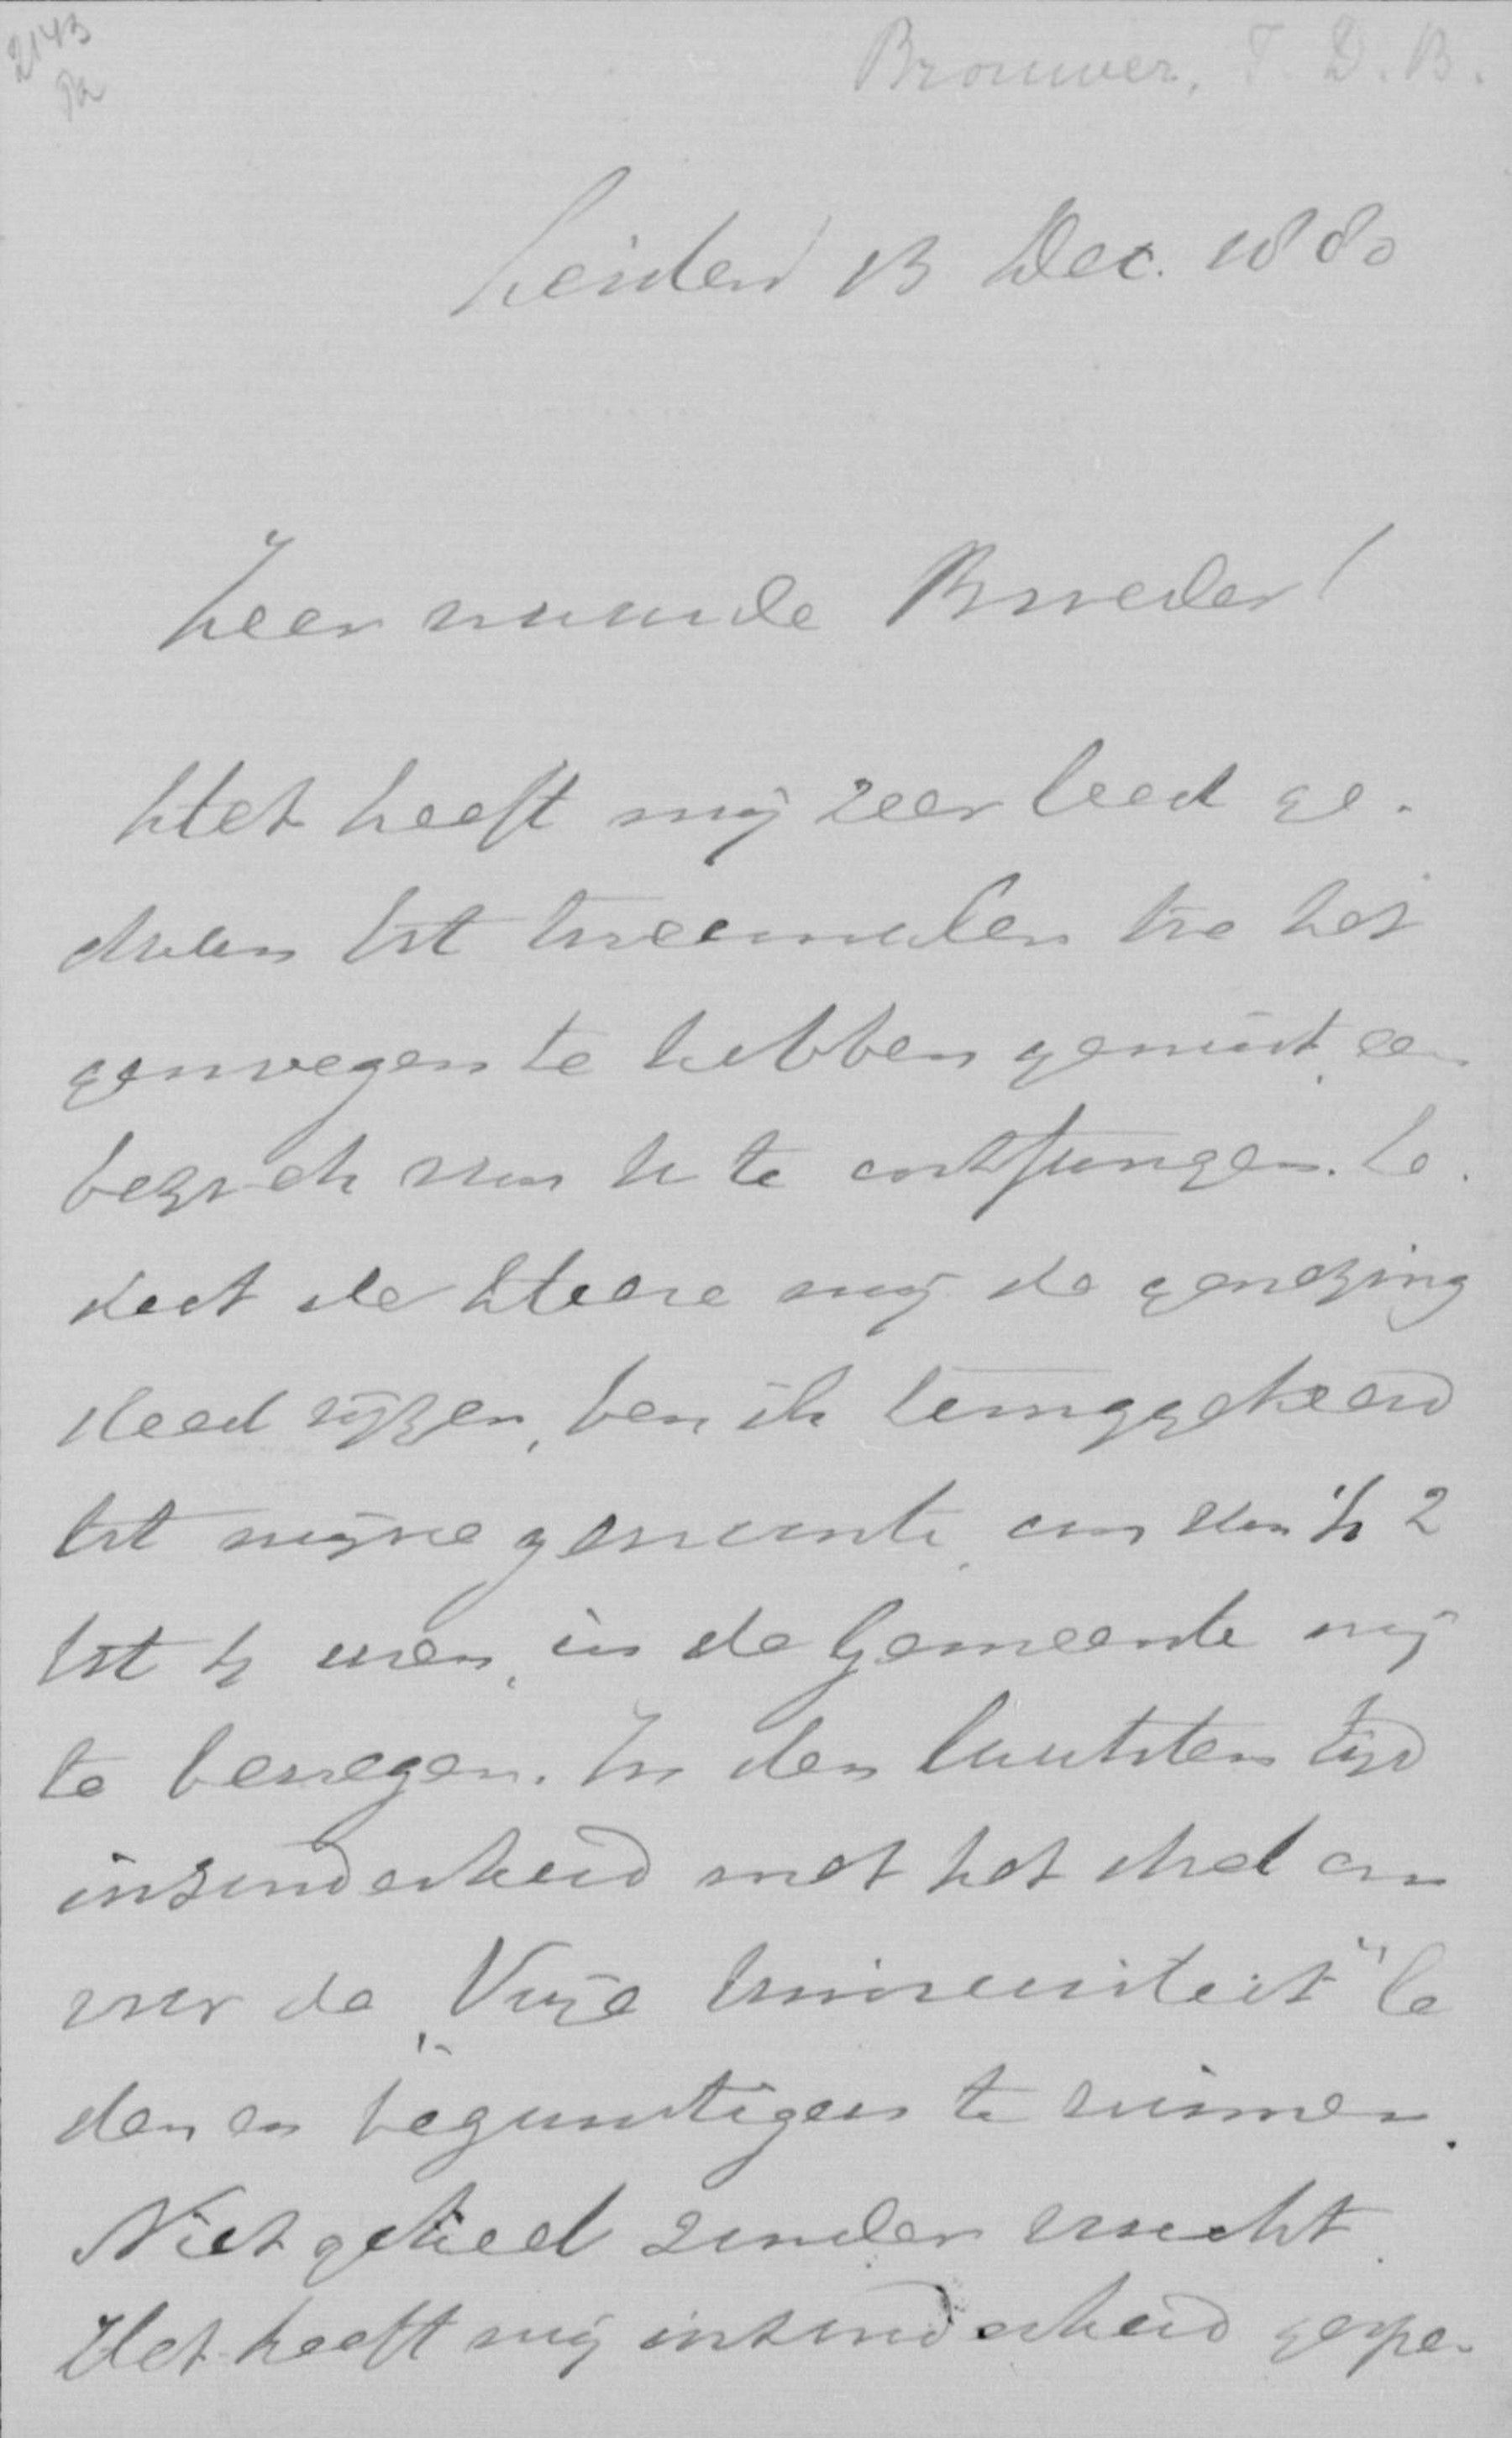 2143
Brouwer, T. D. B.
Leiden 13 Dec. 1880
Zeer waarde Broeder!
Het heeft mij zeer leed ge-
daan tot tweemalen toe het
genoegen te hebben gemist, een
bezoek van U te ontfangen. Se-
dert de Heere mij de genezing
deed rijzen, ben ik teruggekeerd
tot mijne gemeente, om van 1/2 2
tot 4 uren, in de Gemeente mij
te bewegen. In den laatsten tijd
inzonderheid met het doel om
voor de „Vrije Universiteit" le
den en begunstigers te winnen.
Niet geheel zonder vrucht.
Het heeft mij inzonderheid gespe-